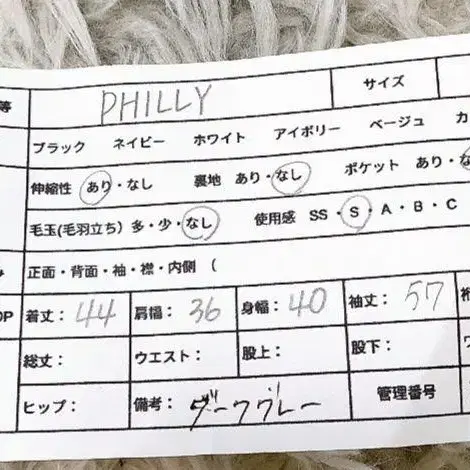 等 PHILLY サイズ
ブラック ネイビー ホワイト アイボリー ベージュ カ
伸縮性 あり・なし 裏地 あり・なし ポケット あり・な
毛玉(毛羽立ち) 多・少・なし 使用感 SS・S・A・B・C
み 正面・背面・袖・襟・内側 (
OP 着丈: 44 肩幅: 36 身幅: 40 袖丈: 57 裄
総丈: ウエスト: 股上: 股下: ワ
ヒップ: 備考: ダークグレー 管理番号